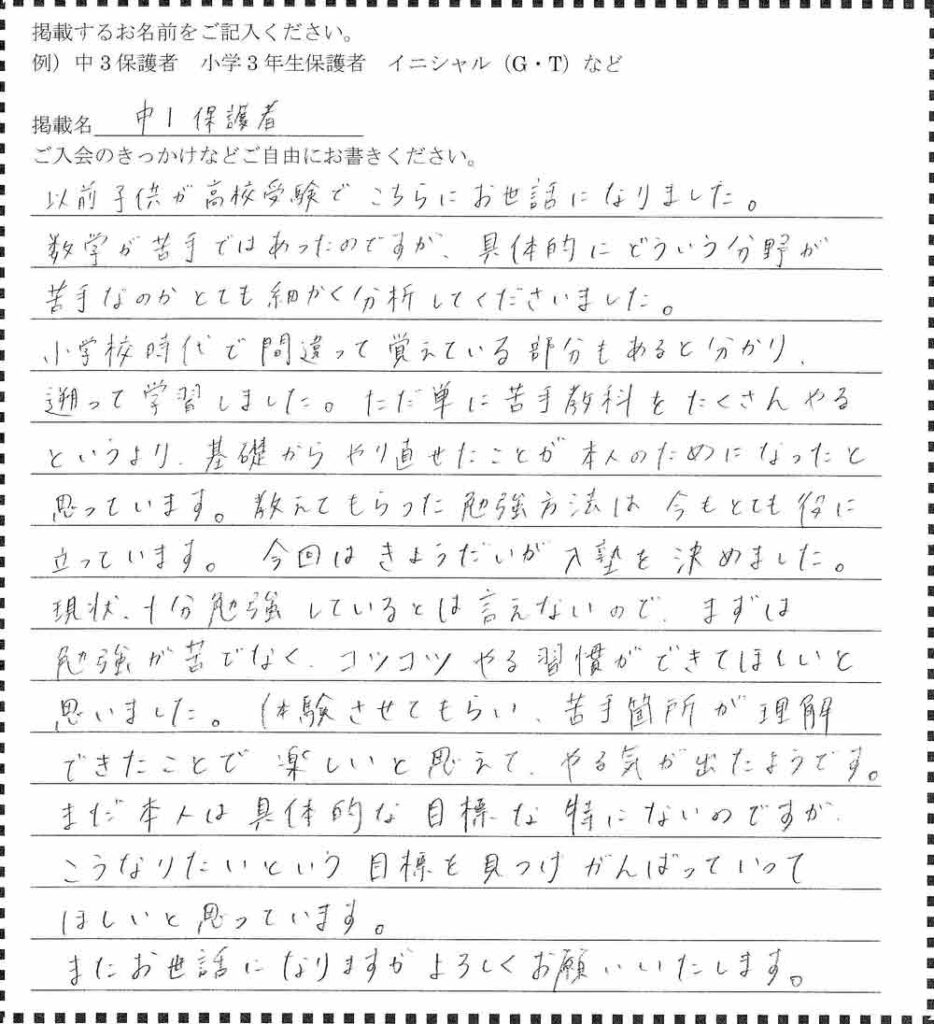 掲載するお名前をご記入ください。
例）中３保護者　小学３年生保護者　イニシャル（G・T）など
掲載名 中1 保護者
ご入会のきっかけなどご自由にお書きください。
以前子供が高校受験でこちらにお世話になりました。
数学が苦手ではあったのですが、具体的にどういう分野が
苦手なのかとても細かく分析してくださいました。
小学校時代で間違って覚えている部分もあると分かり、
遡って学習しました。ただ単に苦手教科をたくさんやる
というより、基礎からやり直せたことが本人のためになったと
思っています。教えてもらった勉強方法は今もとても役に
立っています。今回はきょうだいが入塾を決めました。
現状、十分勉強しているとは言えないので、まずは
勉強が苦でなく、コツコツやる習慣ができてほしいと
思いました。体験させてもらい、苦手箇所が理解
できたことで楽しいと思えて、やる気が出たようです。
まだ本人は具体的な目標な特にないのですが、
こうなりたいという目標を見つけがんばっていって
ほしいと思っています。
またお世話になりますがよろしくお願いいたします。